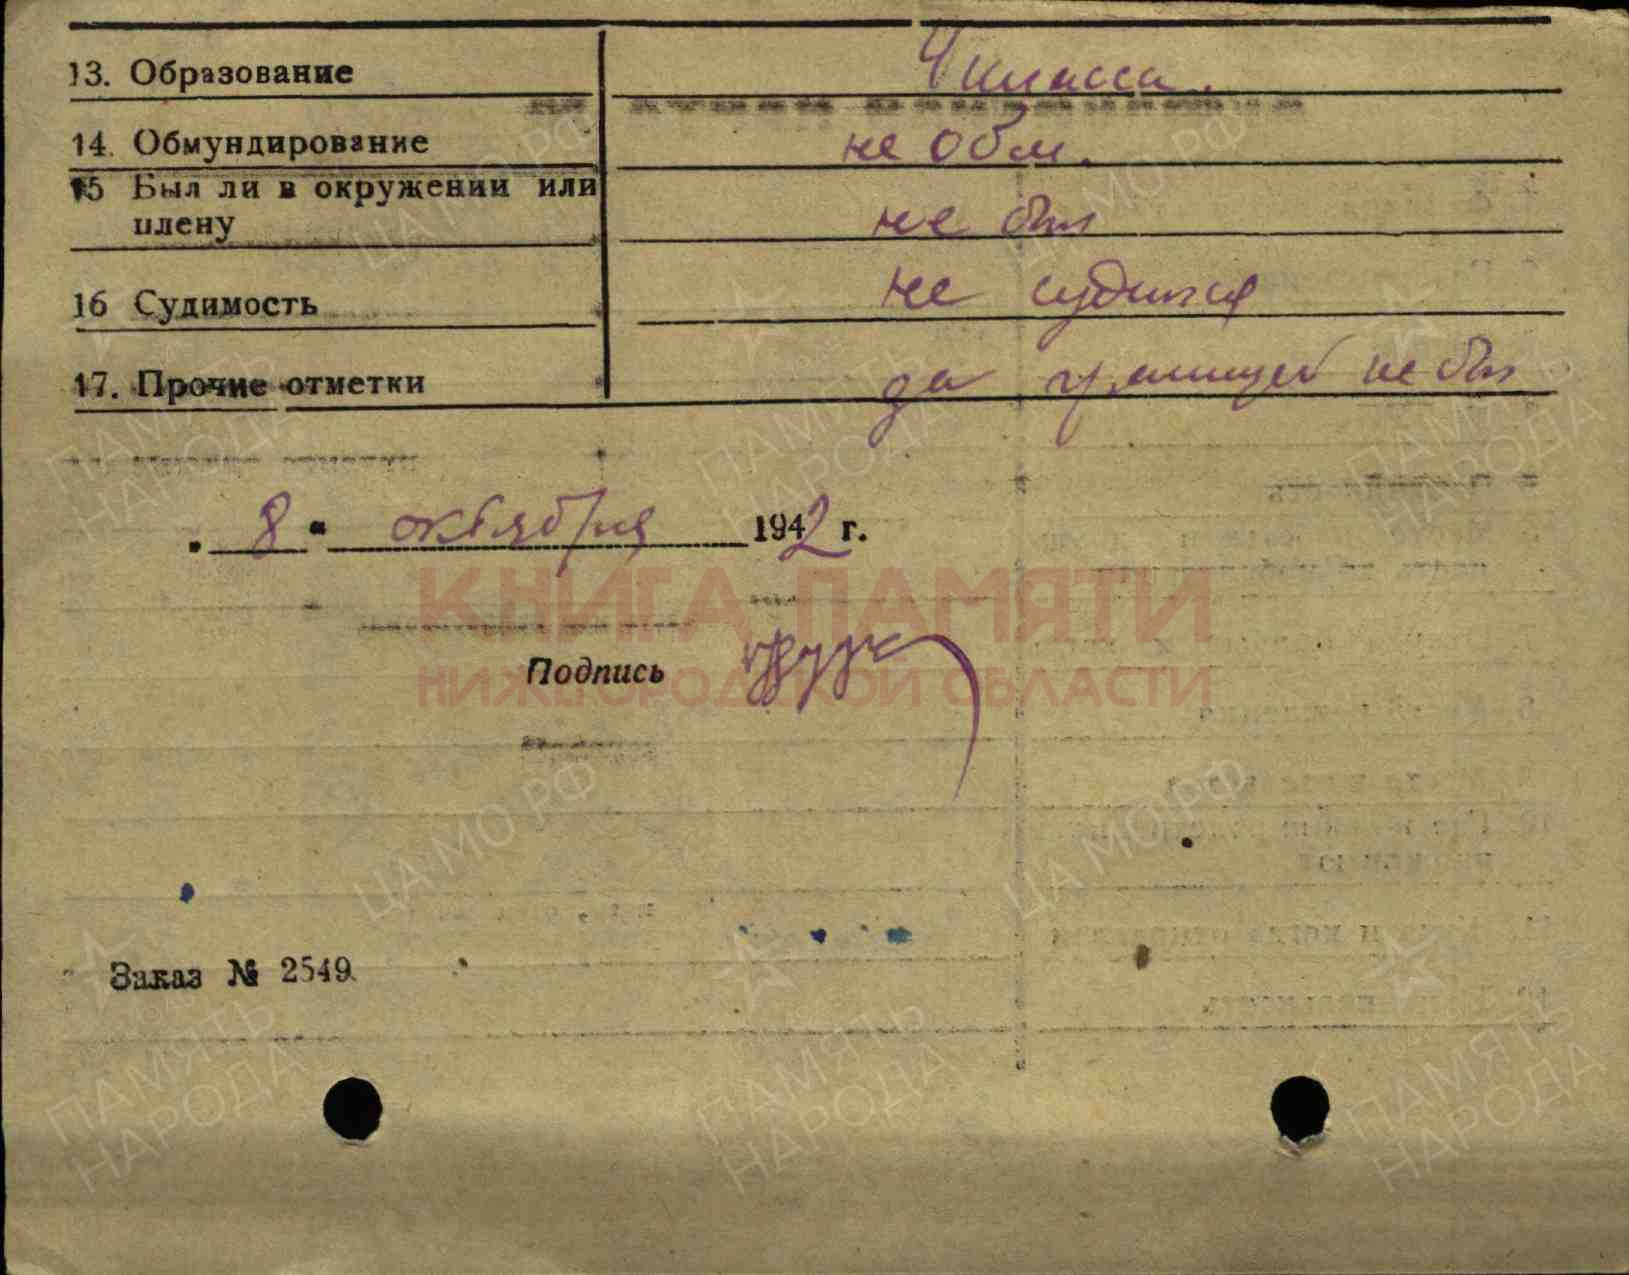 13. Образование 4 класса.
14. Обмундирование не обм.
15 Был ли в окружении или плену не был
16 Судимость не судился
17. Прочие отметки за границей не был
„ 8 " октября 1942 г.
КНИГА ПАМЯТИ
НИЖЕГОРОДСКОЙ ОБЛАСТИ
Подпись
Заказ № 2549
ПАМЯТЬ НАРОДА
ЦА МО РФ